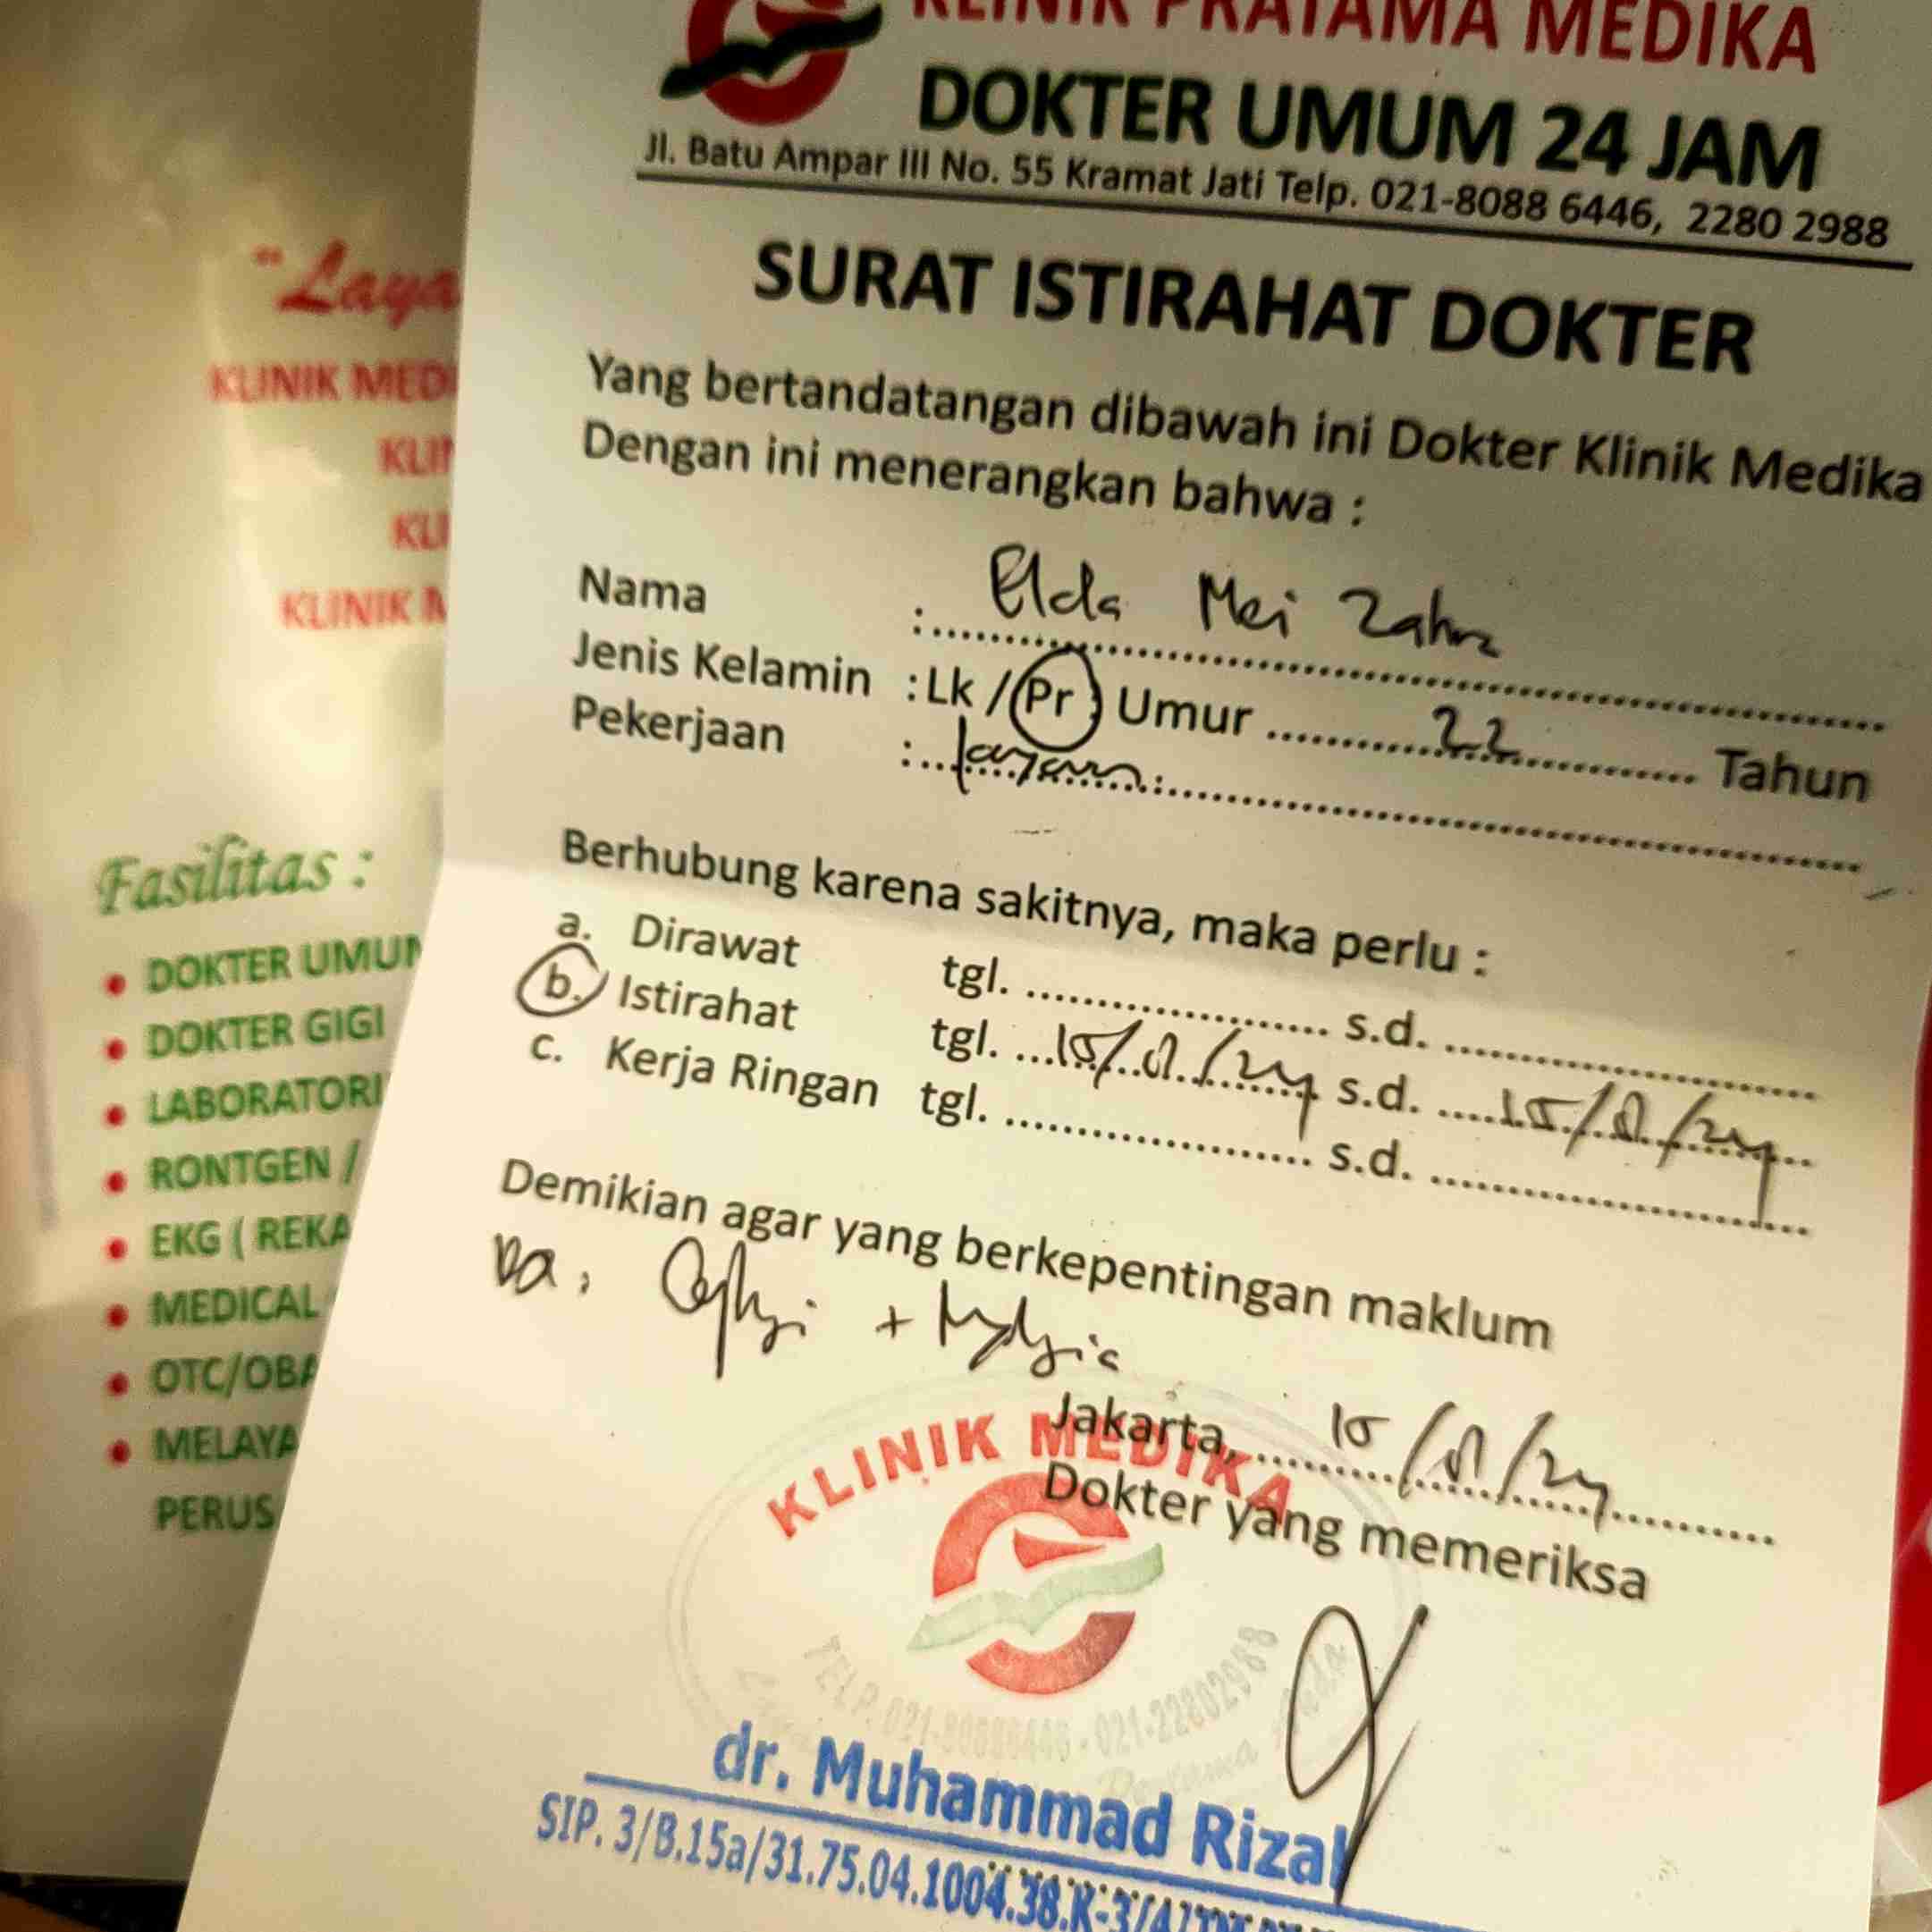 KLINIK PRATAMA MEDIKA
DOKTER UMUM 24 JAM
Jl. Batu Ampar III No. 55 Kramat Jati Telp. 021-8088 6446, 2280 2988
SURAT ISTIRAHAT DOKTER
Yang bertandatangan dibawah ini Dokter Klinik Medika
Dengan ini menerangkan bahwa :
Nama : Elda Mei Zahra
Jenis Kelamin : Lk / Pr ) Umur 22 Tahun
Pekerjaan :
Berhubung karena sakitnya, maka perlu :
a. Dirawat tgl. s.d.
b. Istirahat tgl. 15/ s.d. 15/
c. Kerja Ringan tgl. s.d.
Demikian agar yang berkepentingan maklum
Jakarta, 15/
Dokter yang memeriksa
KLINIK MEDIKA
TELP. 021-80886446 - 021-22802988
dr. Muhammad Rizal
SIP. 3/B.15a/31.75.04.1004.38.K-3/
"Laya
KLINIK MEDI
KLIN
KLI
KLINIK M
Fasilitas :
DOKTER UMUM
DOKTER GIGI
LABORATORI
RONTGEN /
EKG ( REKA
MEDICAL
OTC/OBA
MELAYA
PERUS